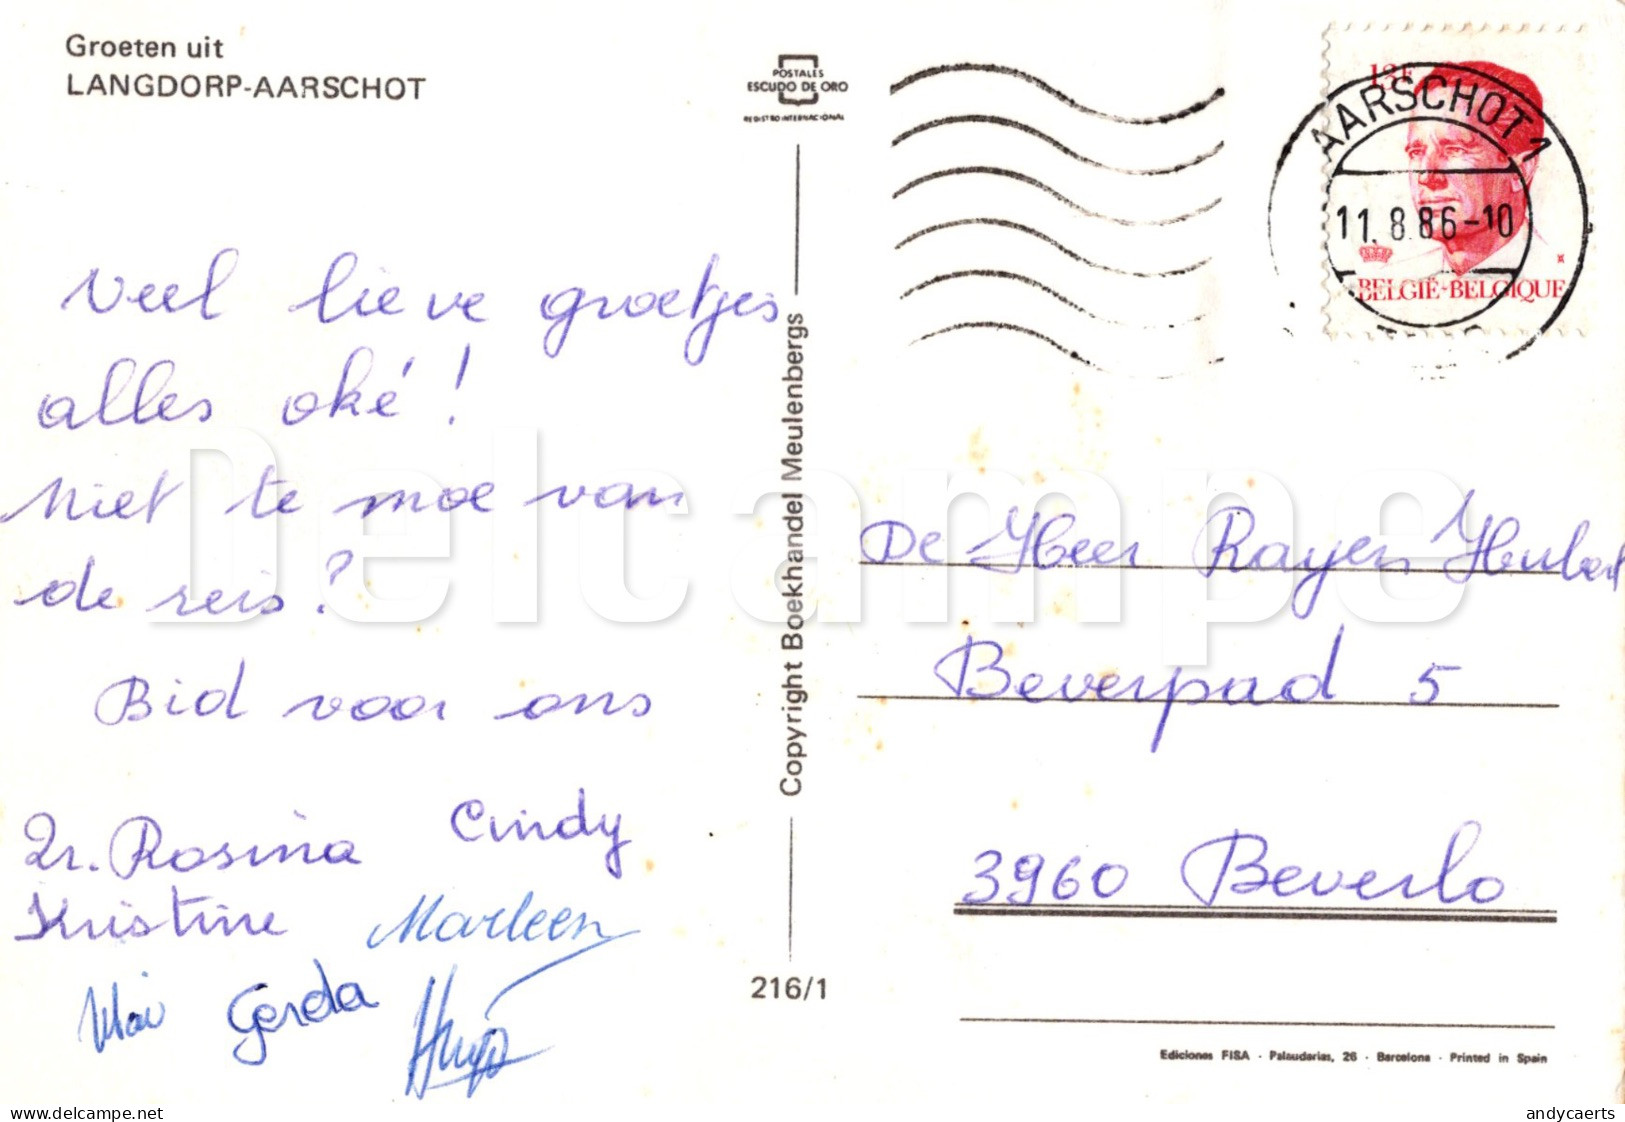 Groeten uit
LANGDORP-AARSCHOT
POSTALES
ESCUDO DE ORO
REGISTRO INTERNACIONAL
13F
AARSCHOT 1
11.8.86-10
BELGIË-BELGIQUE
Veel lieve groetjes
alles oké!
Niet te moe van
de reis?
Bid voor ons
Zr. Rosina Cindy
Kristine Marleen
Gerda Hugo
Copyright Boekhandel Meulenbergs
216/1
De Heer Rayen Hubert
Beverpad 5
3960 Beverlo
Ediciones FISA - Palaudarias, 26 - Barcelona - Printed in Spain
Delcampe
www.delcampe.net
andycaerts